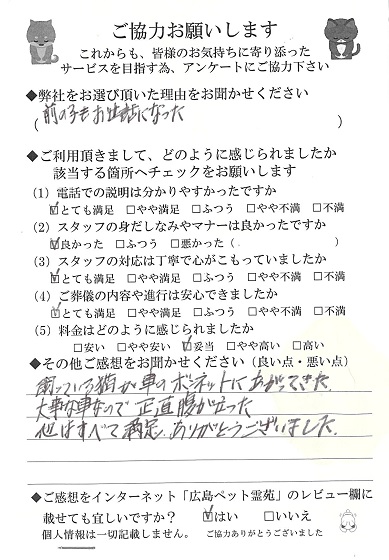 ご協力お願いします
これからも、皆様のお気持ちに寄り添った
サービスを目指す為、アンケートにご協力下さい
◆弊社をお選び頂いた理由をお聞かせください
(前の子もお世話になった)
◆ご利用頂きまして、どのように感じられましたか
該当する箇所へチェックをお願いします
(1) 電話での説明は分かりやすかったですか
☑とても満足 □やや満足 □ふつう □やや不満 □不満
(2) スタッフの身だしなみやマナーは良かったですか
☑良かった □ふつう □悪かった ( )
(3) スタッフの対応は丁寧で心がこもっていましたか
☑とても満足 □やや満足 □ふつう □やや不満 □不満
(4) ご葬儀の内容や進行は安心できましたか
☑とても満足 □やや満足 □ふつう □やや不満 □不満
(5) 料金はどのように感じられましたか
□安い □やや安い ☑妥当 □やや高い □高い
◆その他ご感想をお聞かせください (良い点・悪い点)
飼っている猫が車のボンネットにあがってきた。
大事な車なので正直腹が立った
他はすべて満足。ありがとうございました。
◆ご感想をインターネット「広島ペット霊苑」のレビュー欄に
載せても宜しいですか? ☑はい □いいえ
個人情報は一切記載しません。 ご協力ありがとうございました